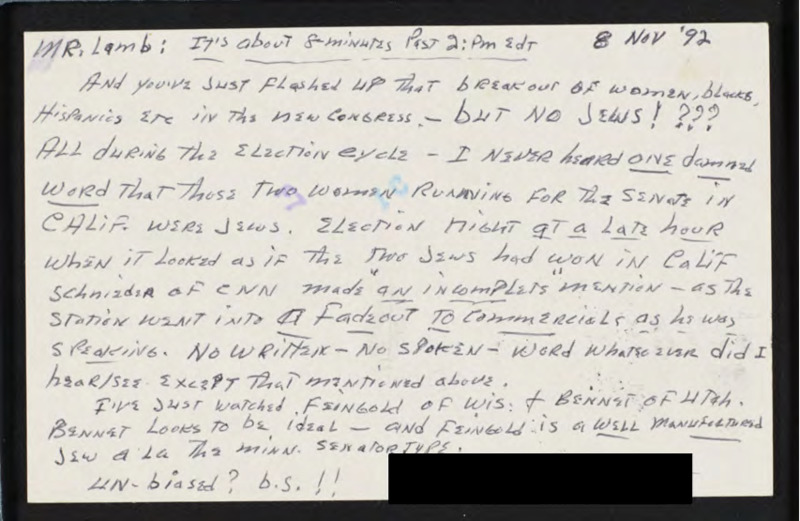 MR. Lamb: IT's about 8-minutes Past 2:Pm EdT 8 NOV '92
AND YOU'VE JUST FLASHED UP THAT BREAKOUT OF WOMEN, blacks,
HISPANICS ETC IN THE NEW CONGRESS. - BUT NO JEWS! ???
ALL DURING THE ELECTION CYCLE - I NEVER heard ONE damned
WORD THAT THOSE TWO WOMEN RUNNING FOR THE SENATE IN
CALIF. WERE JEWS. ELECTION NIGHT AT A LATE HOUR
WHEN IT LOOKED AS IF THE TWO JEWS HAD WON IN CALIF
SCHNIEDER OF CNN MADE "AN INCOMPLETE" MENTION - AS THE
STATION WENT INTO A FADEOUT TO COMMERCIALS AS HE WAS
SPEAKING. NO WRITTEN - NO SPOKEN - WORD WHATSOEVER did I
hear/see EXCEPT THAT MENTIONED ABOVE.
I'VE JUST WATCHED FEINGOLD OF WIS. & BENNET OF UTAH.
BENNET LOOKS TO BE IDEAL - AND FEINGOLD IS A WELL MANUFACTURED
JEW A LA THE MINN. SENATOR TYPE.
UN-biased? b.s.!!